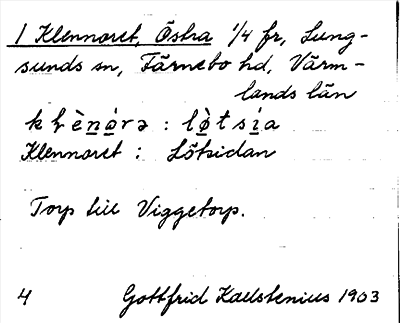 1 Klennoret, Östra 1/4 fr, Lung-
sunds sn, Färnebo hd, Värm-
lands län
Klennoret : Lötsidan
Torp till Viggetorp.
4 Gottfrid Kallstenius 1903